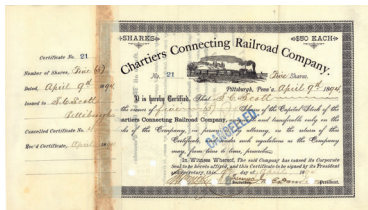 Certificate No. 21
Number of Shares, Five (5)
Dated, April 9th 1894
Issued to S. C. Scott
Pittsburgh
Cancelled Certificate No.
Rec'd Certificate, April
SHARES
$50 EACH
Chartiers Connecting Railroad Company.
No. 21
Five Shares.
Pittsburgh, Penn'a April 9th 1894
It is hereby Certified, That S. C. Scott
the owner of five Shares of the Capital Stock of the
Chartiers Connecting Railroad Company, and transferable only on the
books of the Company, in person or by attorney, on the return of this
Certificate, under such regulations as the Company
may, from time to time, prescribe.
CANCELLED.
In Witness Whereof, The said Company has caused its Corporate
Seal to be hereto affixed, and this Certificate to be signed by its President
and Secretary, this 9th day of April
Secretary
President.